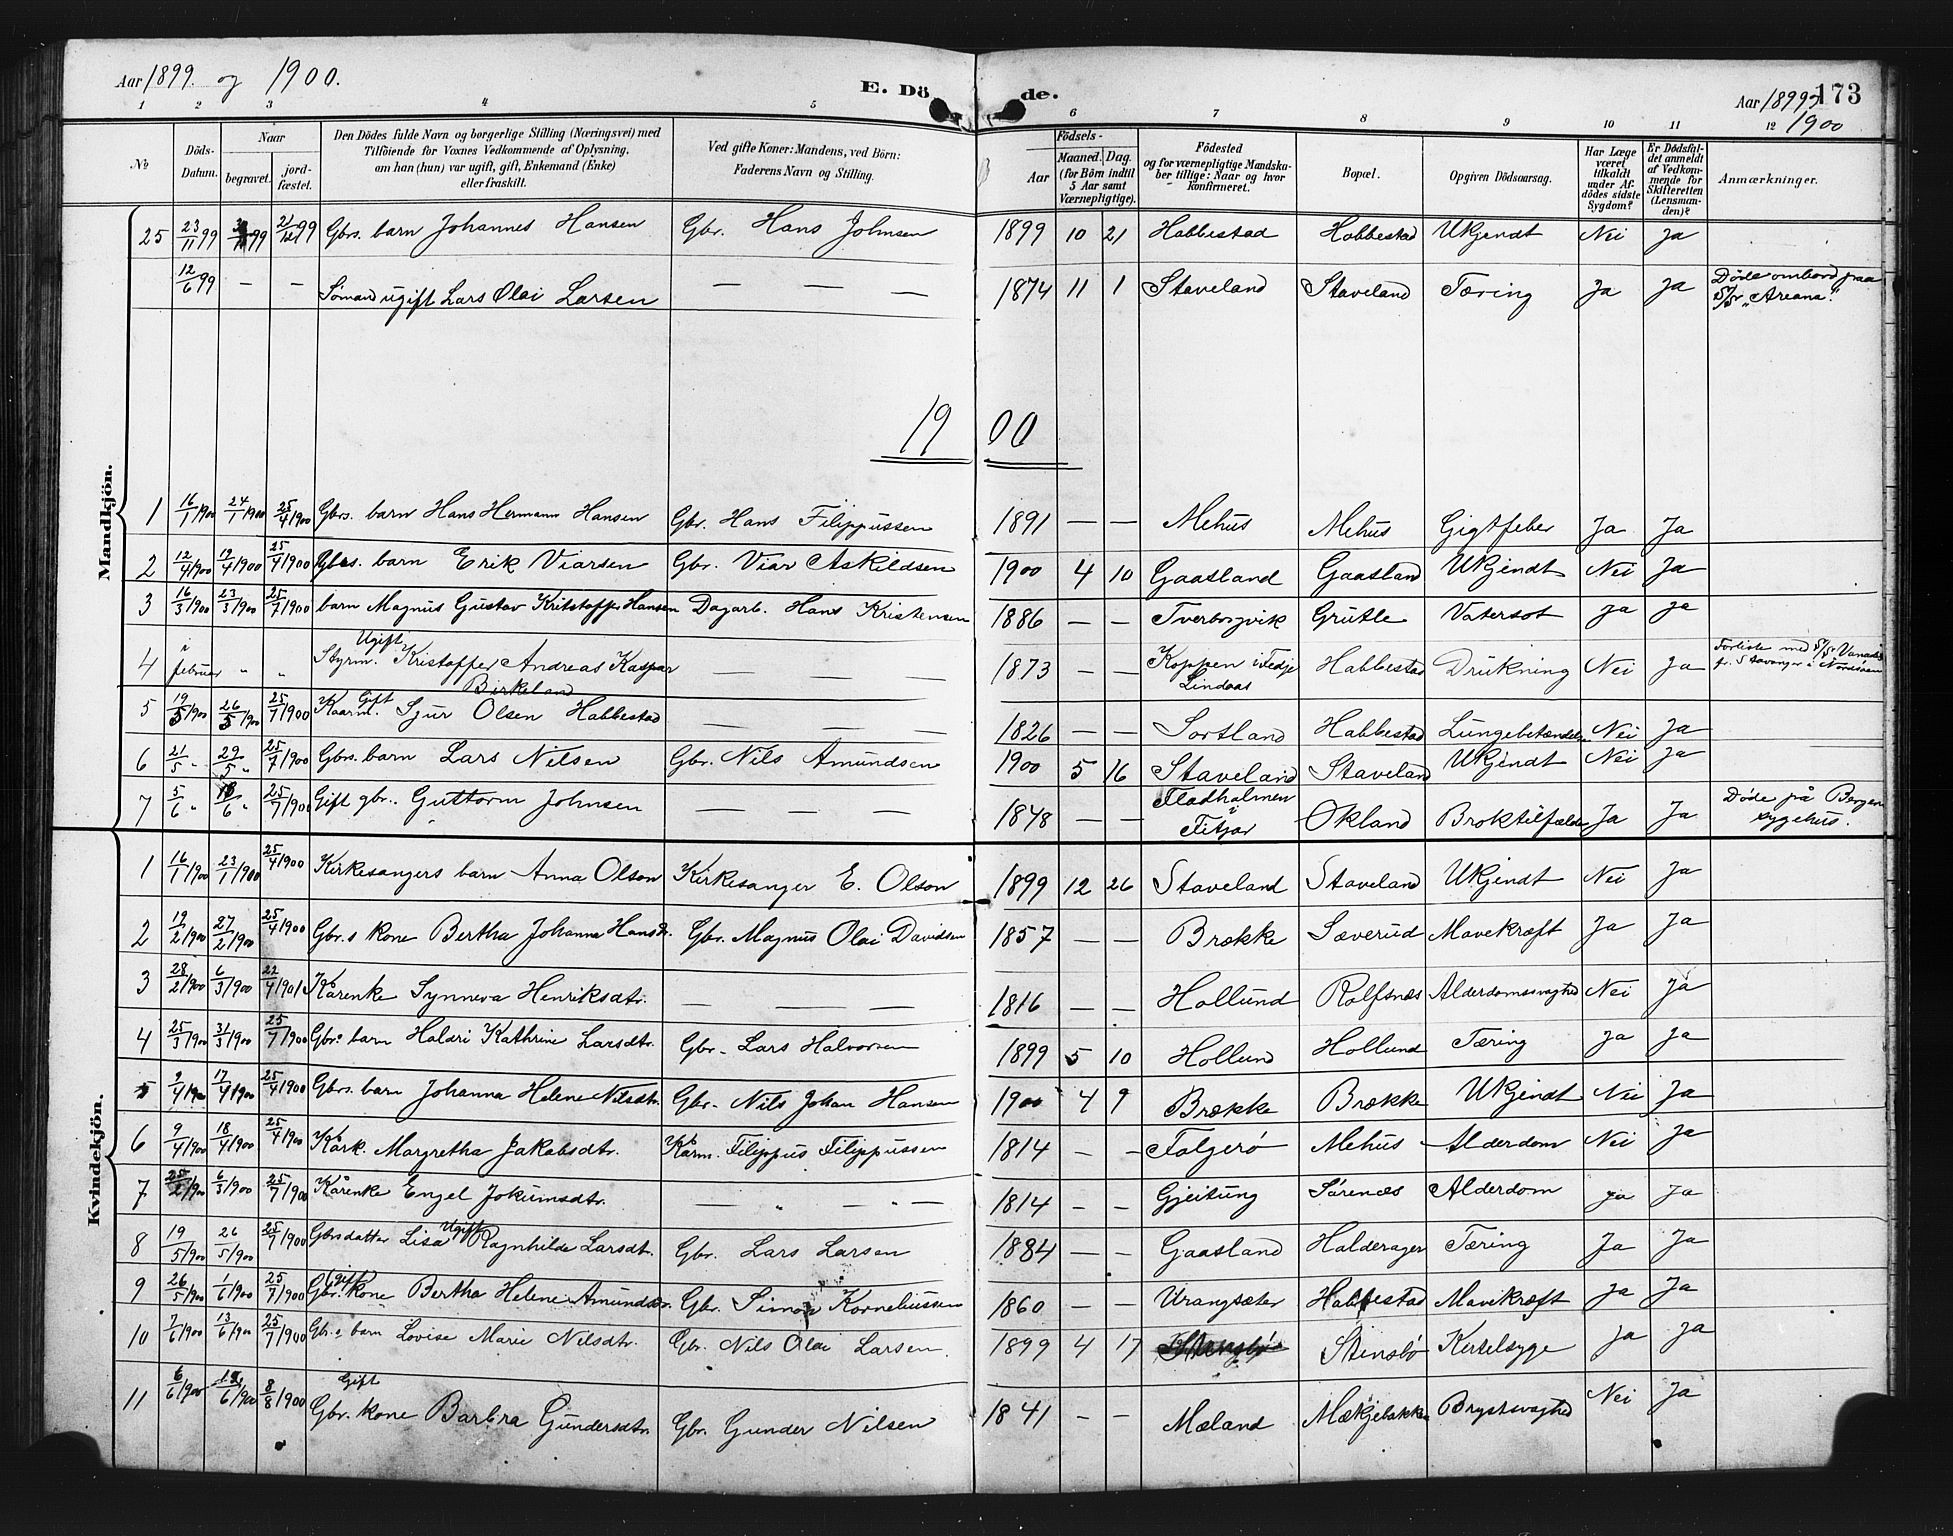 Aar 1899. og 1900.
E. Döde.
Aar 1899 1900
173
1 2 3 4 5 6 7 8 9 10 11 12
Mandkjön.
Kvindekjön.
№
Döds-Datum.
Naar
begravet. jordfæstet.
Den Dödes fulde Navn og borgerlige Stilling (Næringsvei) med
Tilföiende for Voxnes Vedkommende af Oplysning,
om han (hun) var ugift, gift, Enkemand (Enke)
eller fraskilt.
Ved gifte Koner: Mandens, ved Börn:
Faderens Navn og Stilling.
Födsels-
Aar Maaned. Dag.
(for Börn indtil
5 Aar samt
Værnepligtige).
Födested
og for værnepligtige Mandska-
ber tillige: Naar og hvor
konfirmeret.
Bopæl.
Opgiven Dödsaarsag.
Har Læge
været
tilkaldt
under Af-
dödes sidste
Sygdom?
Er Dödsfal-
det anmeldt
af Vedkom-
mende for
Skifteretten
(Lensman-
den)?
Anmærkninger.
25 23/11 99 21/12 99 Gbrs. barn Johannes Hansen Gbr. Hans Johnsen 1899 10 21 Habbestad Habbestad Ukjendt Nei Ja
12/6 99 — — Sömand ugift Lars Olai Larsen — — — 1874 11 1 Staveland Staveland Tæring Ja Ja Döde ombord paa S/Sr "Areana."
1900
1 16/1 1900 24/1 1900 25/4 1900 Gbrs. barn Hans Hermann Hansen Gbr. Hans Filippussen 1891 — — Mehus Mehus Gigtfeber Ja Ja
2 12/4 1900 19/4 1900 25/4 1900 Gbrs. barn Erik Viarsen Gbr. Viar Askildsen 1900 4 10 Gaasland Gaasland Ukjendt Nei Ja
3 16/3 1900 23/3 1900 25/7 1900 barn Magnus Gustav Kritstoffer Hansen Dagarb. Hans Kristensen 1886 — — Tverborgvik Grutle Vatersot Ja Ja
4 i februar " " Styrm. Ugift Kristoffer Andreas Kaspar Birkeland — — — 1873 — — Koppen i Fedje Lindaas Habbestad Drukning Nei Ja Forliste med S/Sr Vanadis fr. Stavanger i Nordsöen
5 19/5 1900 26/5 1900 25/7 1900 Kaarm. Gift Sjur Olsen Habbestad — — — 1826 — — Sortland Habbestad Lungebetændelse Nei Ja
6 21/5 " 29/5 " 25/7 1900 Gbrs. barn Lars Nilsen Gbr. Nils Amundsen 1900 5 16 Staveland Staveland Ukjendt Nei Ja
7 5/6 " /6 " 25/7 1900 Gift gbr. Guttorm Johnsen — — — 1848 — — Fladholmen i Fitjar Økland Broktilfælde Ja Ja Döde på Bergen sygehus.
1 16/1 1900 23/1 1900 25/4 1900 Kirkesangers barn Anna Olson Kirkesanger E. Olson 1899 12 26 Staveland Staveland Ukjendt Nei Ja
2 19/2 1900 27/2 1900 25/4 1900 Gbr.s kone Bertha Johanna Hansdr. Gbr. Magnus Olai Davidsen 1857 — — Brække Sæverud Mavekræft Ja Ja
3 28/2 1900 6/3 1900 22/4 1901 Kårenke Synneva Henriksdtr. — — — 1816 — — Hollund Rolfsnæs Alderdomssvaghed Nei Ja
4 25/3 1900 31/3 1900 25/7 1900 Gbrs barn Haldri Kathrine Larsdtr. Gbr. Lars Halvorsen 1899 5 10 Hollund Hollund Tæring Ja Ja
5 9/4 1900 17/4 1900 25/4 1900 Gbrs. barn Johanna Helene Nilsdtr. Gbr. Nils Johan Hansen 1900 4 9 Brække Brække Ukjendt Nei Ja
6 9/4 1900 18/4 1900 25/4 1900 Kårk. Margretha Jakobsdtr. Kårm. Filippus Filippussen 1814 — — Folgerö Mehus Alderdom Nei Ja
7 25/2 1900 6/3 1900 25/7 1900 Kårenke Engel Jokumsdtr. — " — " — 1814 — — Gjeitung Sørenæs Alderdom Ja Ja
8 19/5 1900 26/5 1900 25/7 1900 Gbrsdatter Ugift Lisa Ragnhilde Larsdtr. Gbr. Lars Larsen 1884 — — Gaasland Halderager Tæring Ja Ja
9 26/5 1900 1/6 1900 25/7 1900 Gbr. (gift) kone Bertha Helene Amundsdr. Gbr. Simon Korneliussen 1860 — — Urangsæter Habbestad Mavekræft Ja Ja
10 7/6 1900 13/6 1900 25/7 1900 Gbr.s barn Lovise Marie Nilsdtr. Gbr. Nils Olai Larsen. 1899 4 17 Stensbö Kertelsyge Ja Ja
11 6/6 1900 /6 1900 8/8 1900 Gift Gbr. kone Barbra Gundersdtr. Gbr. Gunder Nilsen 1841 — — Mæland Mækjebakken Brystsvaghed Nei Ja